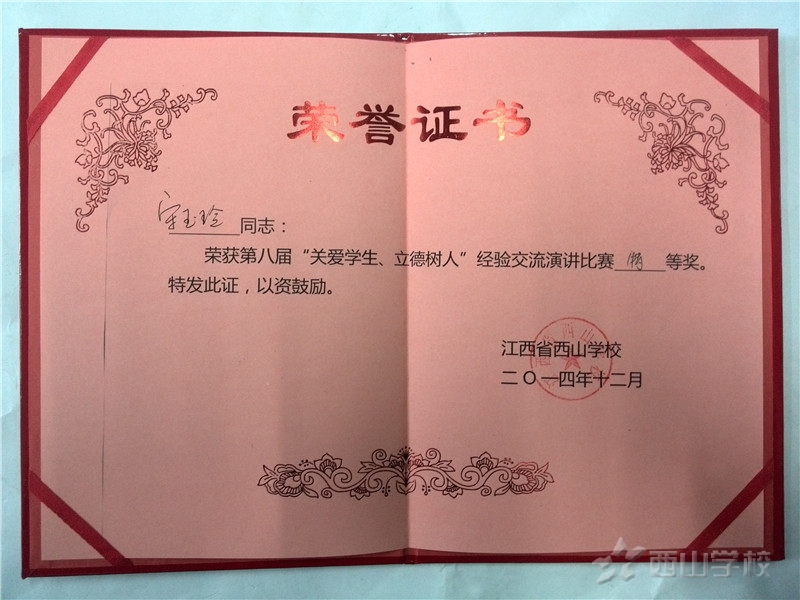 荣誉证书
宋玉玲 同志：
荣获第八届“关爱学生、立德树人”经验交流演讲比赛 等奖。
特发此证，以资鼓励。
江西省西山学校
二〇一四年十二月
西山学校